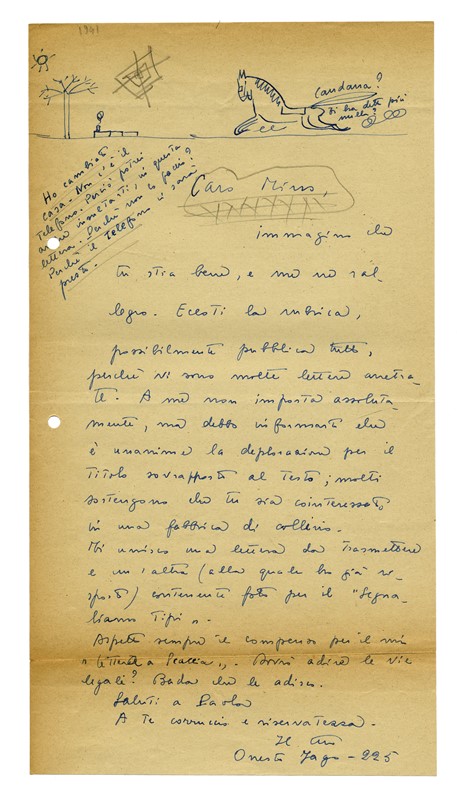 1941
Candana?
Ti ha detto più
nulla?
Ho cambiato
casa. Non c'è il
telefono. Perciò potrei
anche in questa
lettera. Perché non lo faccio?
Perché il telefono ci sarà
presto.
Caro Mino,
immagino che
tu stia bene, e me ne ral-
legro. Eccoti la rubrica,
possibilmente pubblica tutto,
perché vi sono molte lettere arretra-
te. A me non importa assoluta-
mente, ma debbo informarti che
è unanime la deplorazione per il
titolo sovrapposto al testo; molti
sostengono che tu sia cointeressato
in una fabbrica di collirio.
Ti unisco una lettera da trasmettere
e un'altra (alla quale ho già ri-
sposto) contenente foto per il "Segna-
liamo Tipi".
Aspetto sempre il compenso per il mio
"Lettere a
". Dovrò adire le vie
legali? Bada che le adisco.
Saluti a Paola
A te corruccio e riservatezza.
Il tuo
Onesto Jago - 225